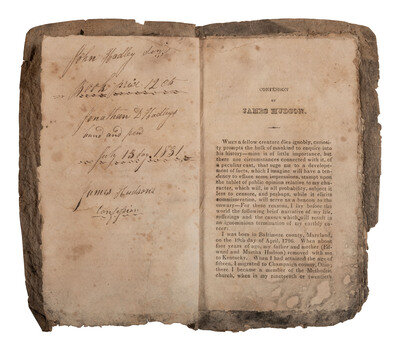 John Hadley
Book price 12 cts
Jonathan D Hadleys
and
July 13 1831
James Hudsons
Confession
CONFESSION
OF
JAMES HUDSON.
WHEN a fellow creature dies ignobly, curiosi-
ty prompts the bulk of mankind to enquire into
his history—mine is of little importance, but
there are circumstances connected with it, of
a peculiar cast, that urge me to a development
of facts, which I imagine will have a tenden-
cy to efface some impressions, stamped upon
the tablet of public opinion relative to my cha-
racter, which will, in all probability, subject it
less to censure, and perhaps, while it elicits
commiseration, will serve as a beacon to the
unwary—For these reasons, I lay before the
world the following brief narrative of my life,
sufferings and the causes which resulted in
an ignominious termination of my earthly ca-
reer.
I was born in Baltimore county, Maryland,
on the 10th day of April, 1796. When about
four years of age, my father and mother (Ed-
ward and Monika Hudson) removed with me
to Kentucky. When I had attained the age of
fifteen, I migrated to Champaign county, Ohio;
there I became a member of the Methodist
church, when in my nineteenth or twentieth